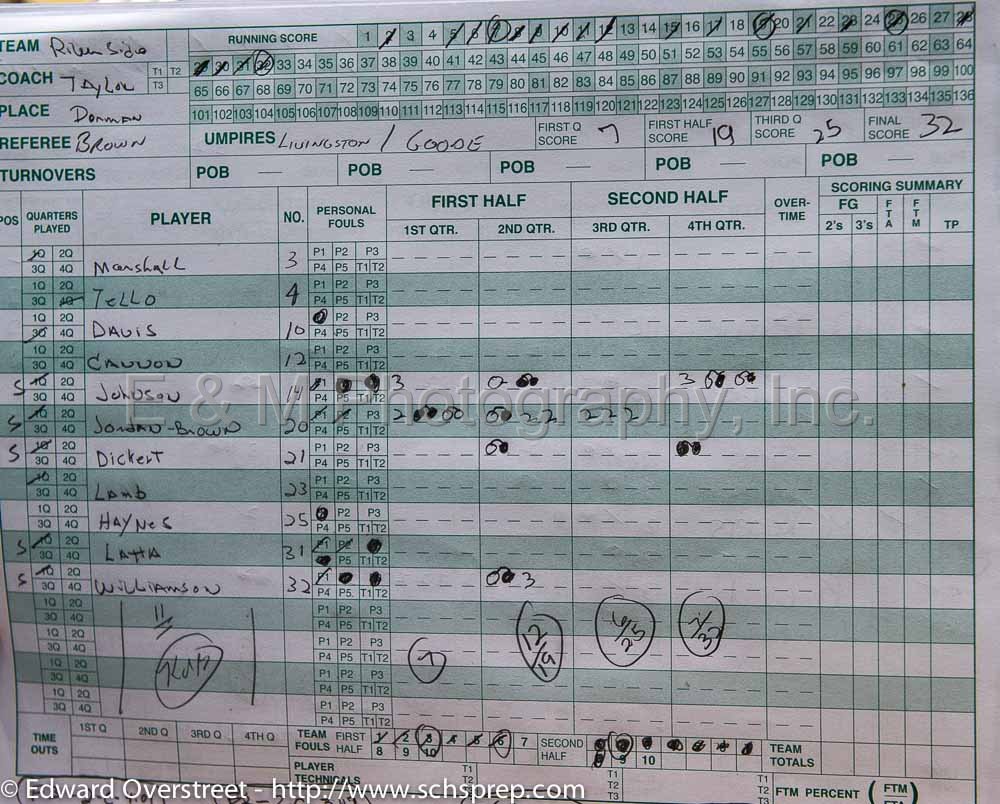 TEAM RiverSide RUNNING SCORE 1 2 3 4 5 6 7 8 9 10 11 12 13 14 15 16 17 18 19 20 21 22 23 24 25 26 27 28
29 30 31 32 33 34 35 36 37 38 39 40 41 42 43 44 45 46 47 48 49 50 51 52 53 54 55 56 57 58 59 60 61 62 63 64
COACH TAYLOR T1 T2 T3 65 66 67 68 69 70 71 72 73 74 75 76 77 78 79 80 81 82 83 84 85 86 87 88 89 90 91 92 93 94 95 96 97 98 99 100
PLACE Dorman 101 102 103 104 105 106 107 108 109 110 111 112 113 114 115 116 117 118 119 120 121 122 123 124 125 126 127 128 129 130 131 132 133 134 135 136
REFEREE BROWN UMPIRES LIVINGSTON / GOODE FIRST Q SCORE 7 FIRST HALF SCORE 19 THIRD Q SCORE 25 FINAL SCORE 32
TURNOVERS POB POB POB POB POB
POS QUARTERS PLAYED PLAYER NO. PERSONAL FOULS FIRST HALF SECOND HALF OVER-TIME SCORING SUMMARY
1ST QTR. 2ND QTR. 3RD QTR. 4TH QTR. FG 2's 3's FTA FTM TP
1Q 2Q P1 P2 P3
3Q 4Q Marshall 3 P4 P5 T1 T2
1Q 2Q P1 P2 P3
3Q 4Q TELLO 4 P4 P5 T1 T2
1Q 2Q P2 P3
3Q 4Q DAVIS 10 P4 P5 T1 T2
1Q 2Q P1 P2 P3
3Q 4Q CANNON 12 P4 P5 T1 T2
S 1Q 2Q P1 3 3
3Q 4Q JOHNSON 14 P4 P5 T1 T2
S 1Q 2Q P1 P2 P3 2 2 2 2 2 2
3Q 4Q JORDAN-BROWN 20 P4 P5 T1 T2
S 1Q 2Q P1 P2 P3
3Q 4Q Dickert 21 P4 P5 T1 T2
1Q 2Q P1 P2 P3
3Q 4Q Lamb 23 P4 P5 T1 T2
1Q 2Q P2 P3
3Q 4Q HAYNES 25 P4 P5 T1 T2
S 1Q 2Q P1 P2
3Q 4Q 31 P5 T1 T2
S 1Q 2Q P1 3
3Q 4Q WILLIAMSON 32 P4 P5 T1 T2
1Q 2Q P1 P2 P3
3Q 4Q P4 P5 T1 T2
1Q 2Q P1 P2 P3
3Q 4Q 7 12/19 6/25 7/32 P4 P5 T1 T2
1Q 2Q P1 P2 P3
3Q 4Q P4 P5 T1 T2
1Q 2Q P1 P2 P3
3Q 4Q P4 P5 T1 T2
TIME OUTS 1ST Q 2ND Q 3RD Q 4TH Q TEAM FOULS FIRST HALF 1 2 3 4 5 6 7 8 9 10 SECOND HALF 8 9 10 TEAM TOTALS
PLAYER TECHNICALS T1 T2 T1 T2 T3 T1 T2 T3 FTM PERCENT ( FTM
E & M Photography, Inc.
© Edward Overstreet - http://www.schsprep.com